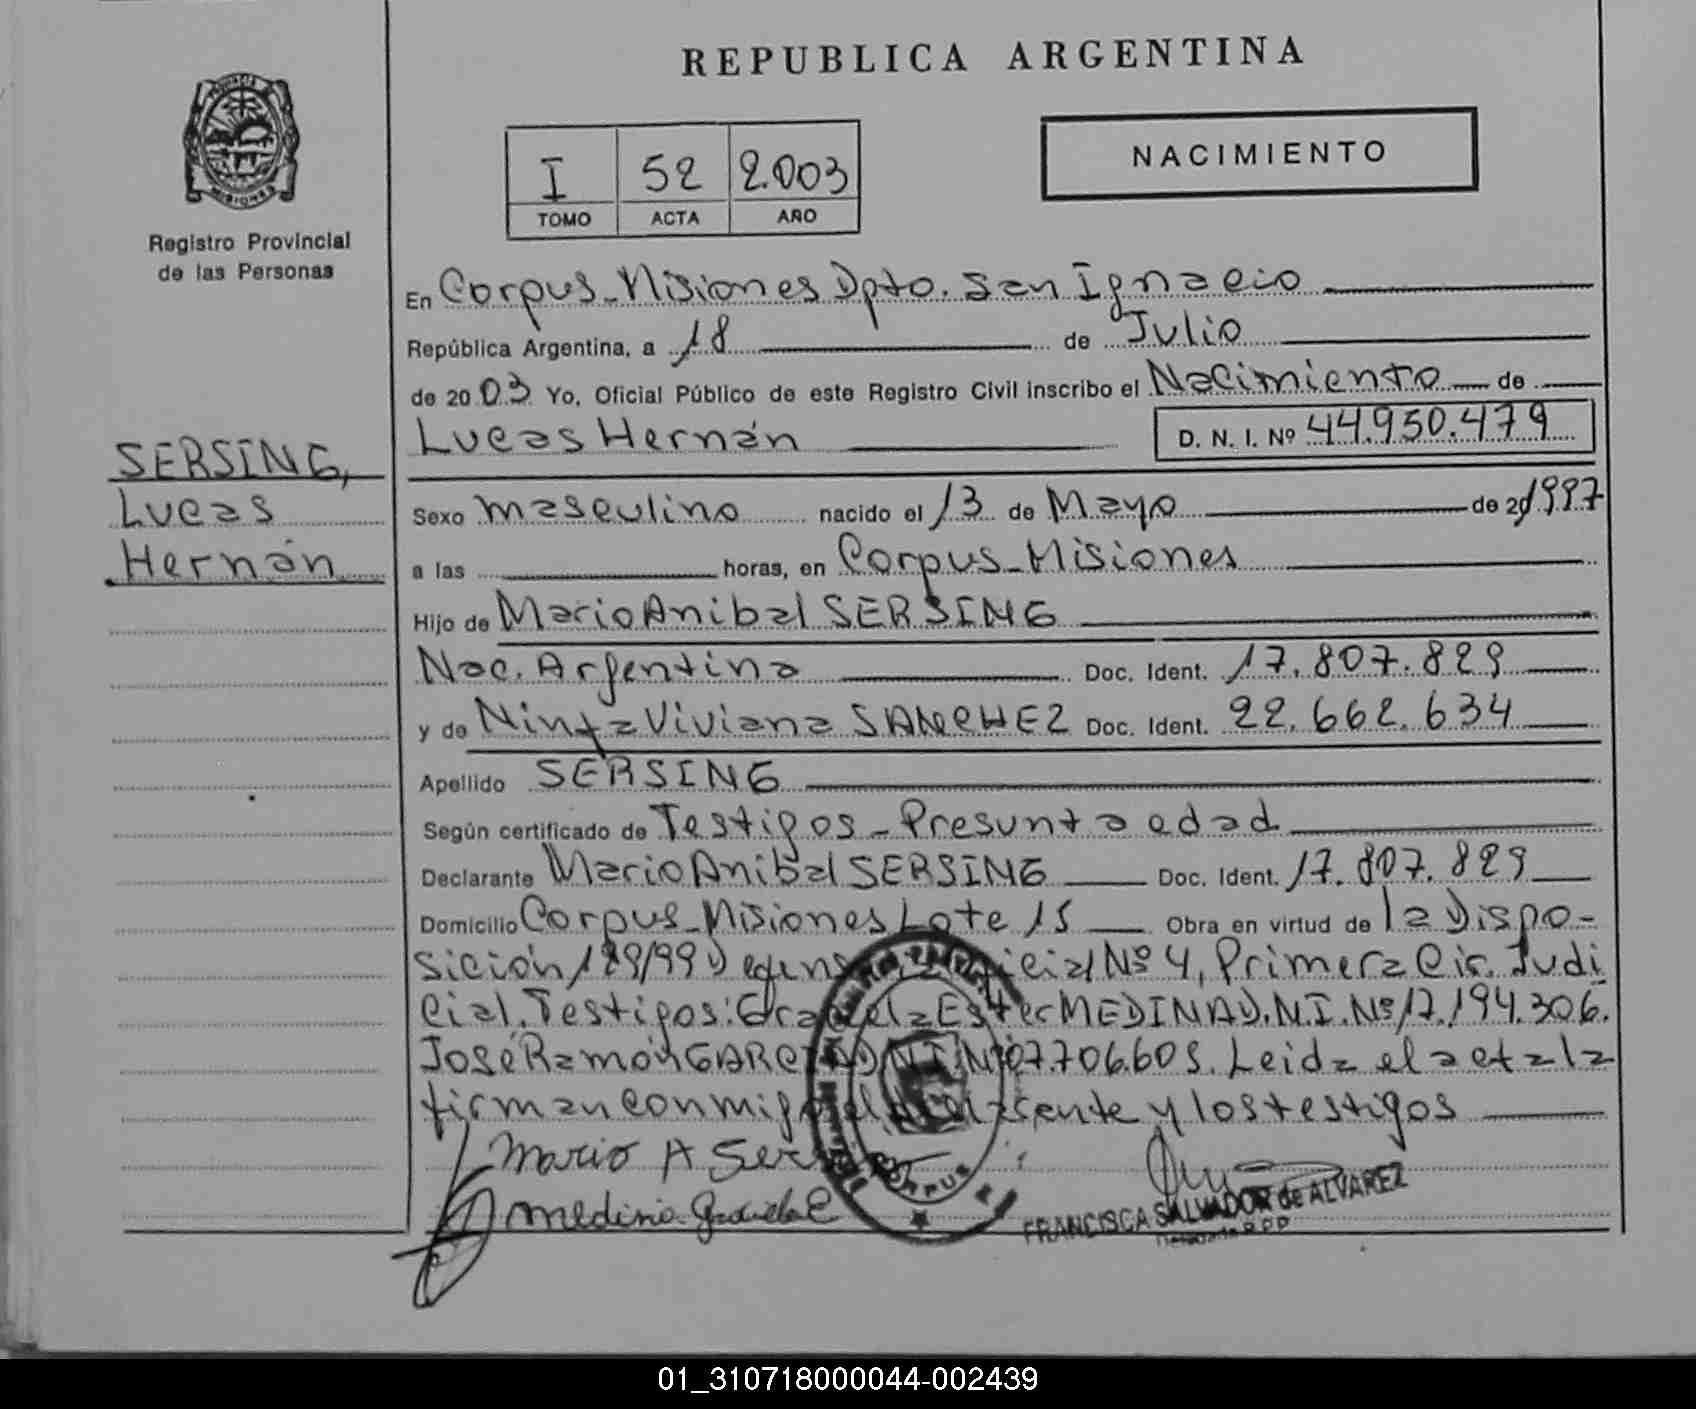 REPUBLICA ARGENTINA
PROVINCIA
MISIONES
Registro Provincial
de las Personas
I 52 2.003
TOMO ACTA AÑO
NACIMIENTO
En Corpus-Misiones Dpto. San Ignacio
República Argentina, a 18 de Julio
de 2003 Yo, Oficial Público de este Registro Civil inscribo el Nacimiento de
Lucas Hernán D. N. I. Nº 44.950.479
SERSING,
Lucas
Hernán
Sexo masculino nacido el 13 de Mayo de 20 1997
a las horas, en Corpus-Misiones
Hijo de Mario Anibal SERSING
Nac. Argentina Doc. Ident. 17.807.829
y de Ninfa Viviana SANCHEZ Doc. Ident. 22.662.634
Apellido SERSING
Según certificado de Testigos-Presunta edad
Declarante Mario Anibal SERSING Doc. Ident. 17.807.829
Domicilio Corpus-Misiones Lote 15 Obra en virtud de la Dispo-
sición 189/99 Nº 4, Primera Cir. Judi
cial. Testigos: Graciela Ester MEDINA D.N.I. Nº 17.194.306.
José Ramón GARCIA D.N.I. Nº 07.706.605. Leida el acta la
firman conmigo el y los testigos
Mario A Ser
medina Graciela E
CORPUS
FRANCISCA SALVADOR de ALVAREZ
01_310718000044-002439